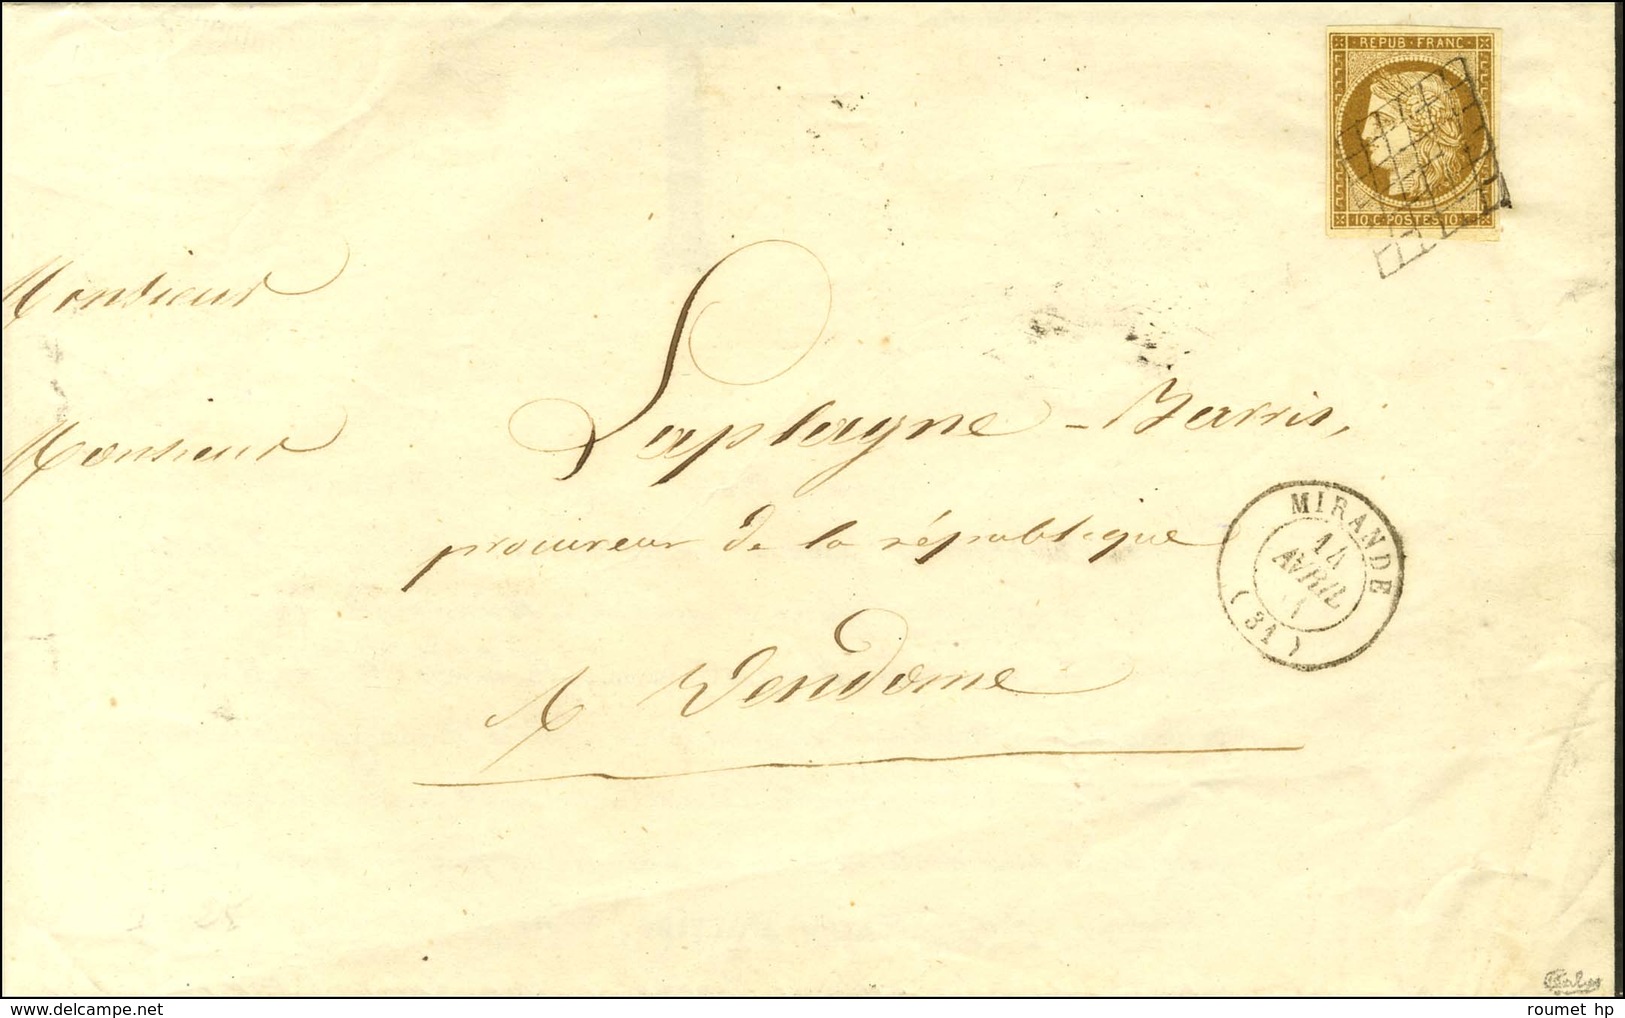 REPUB·FRANC·
10 C·POSTES·10
Monsieur
Monsieur
Laplagne-Barris,
procureur de la république
MIRANDE
14
AVRIL
(31)
A Vendome
roumet hp